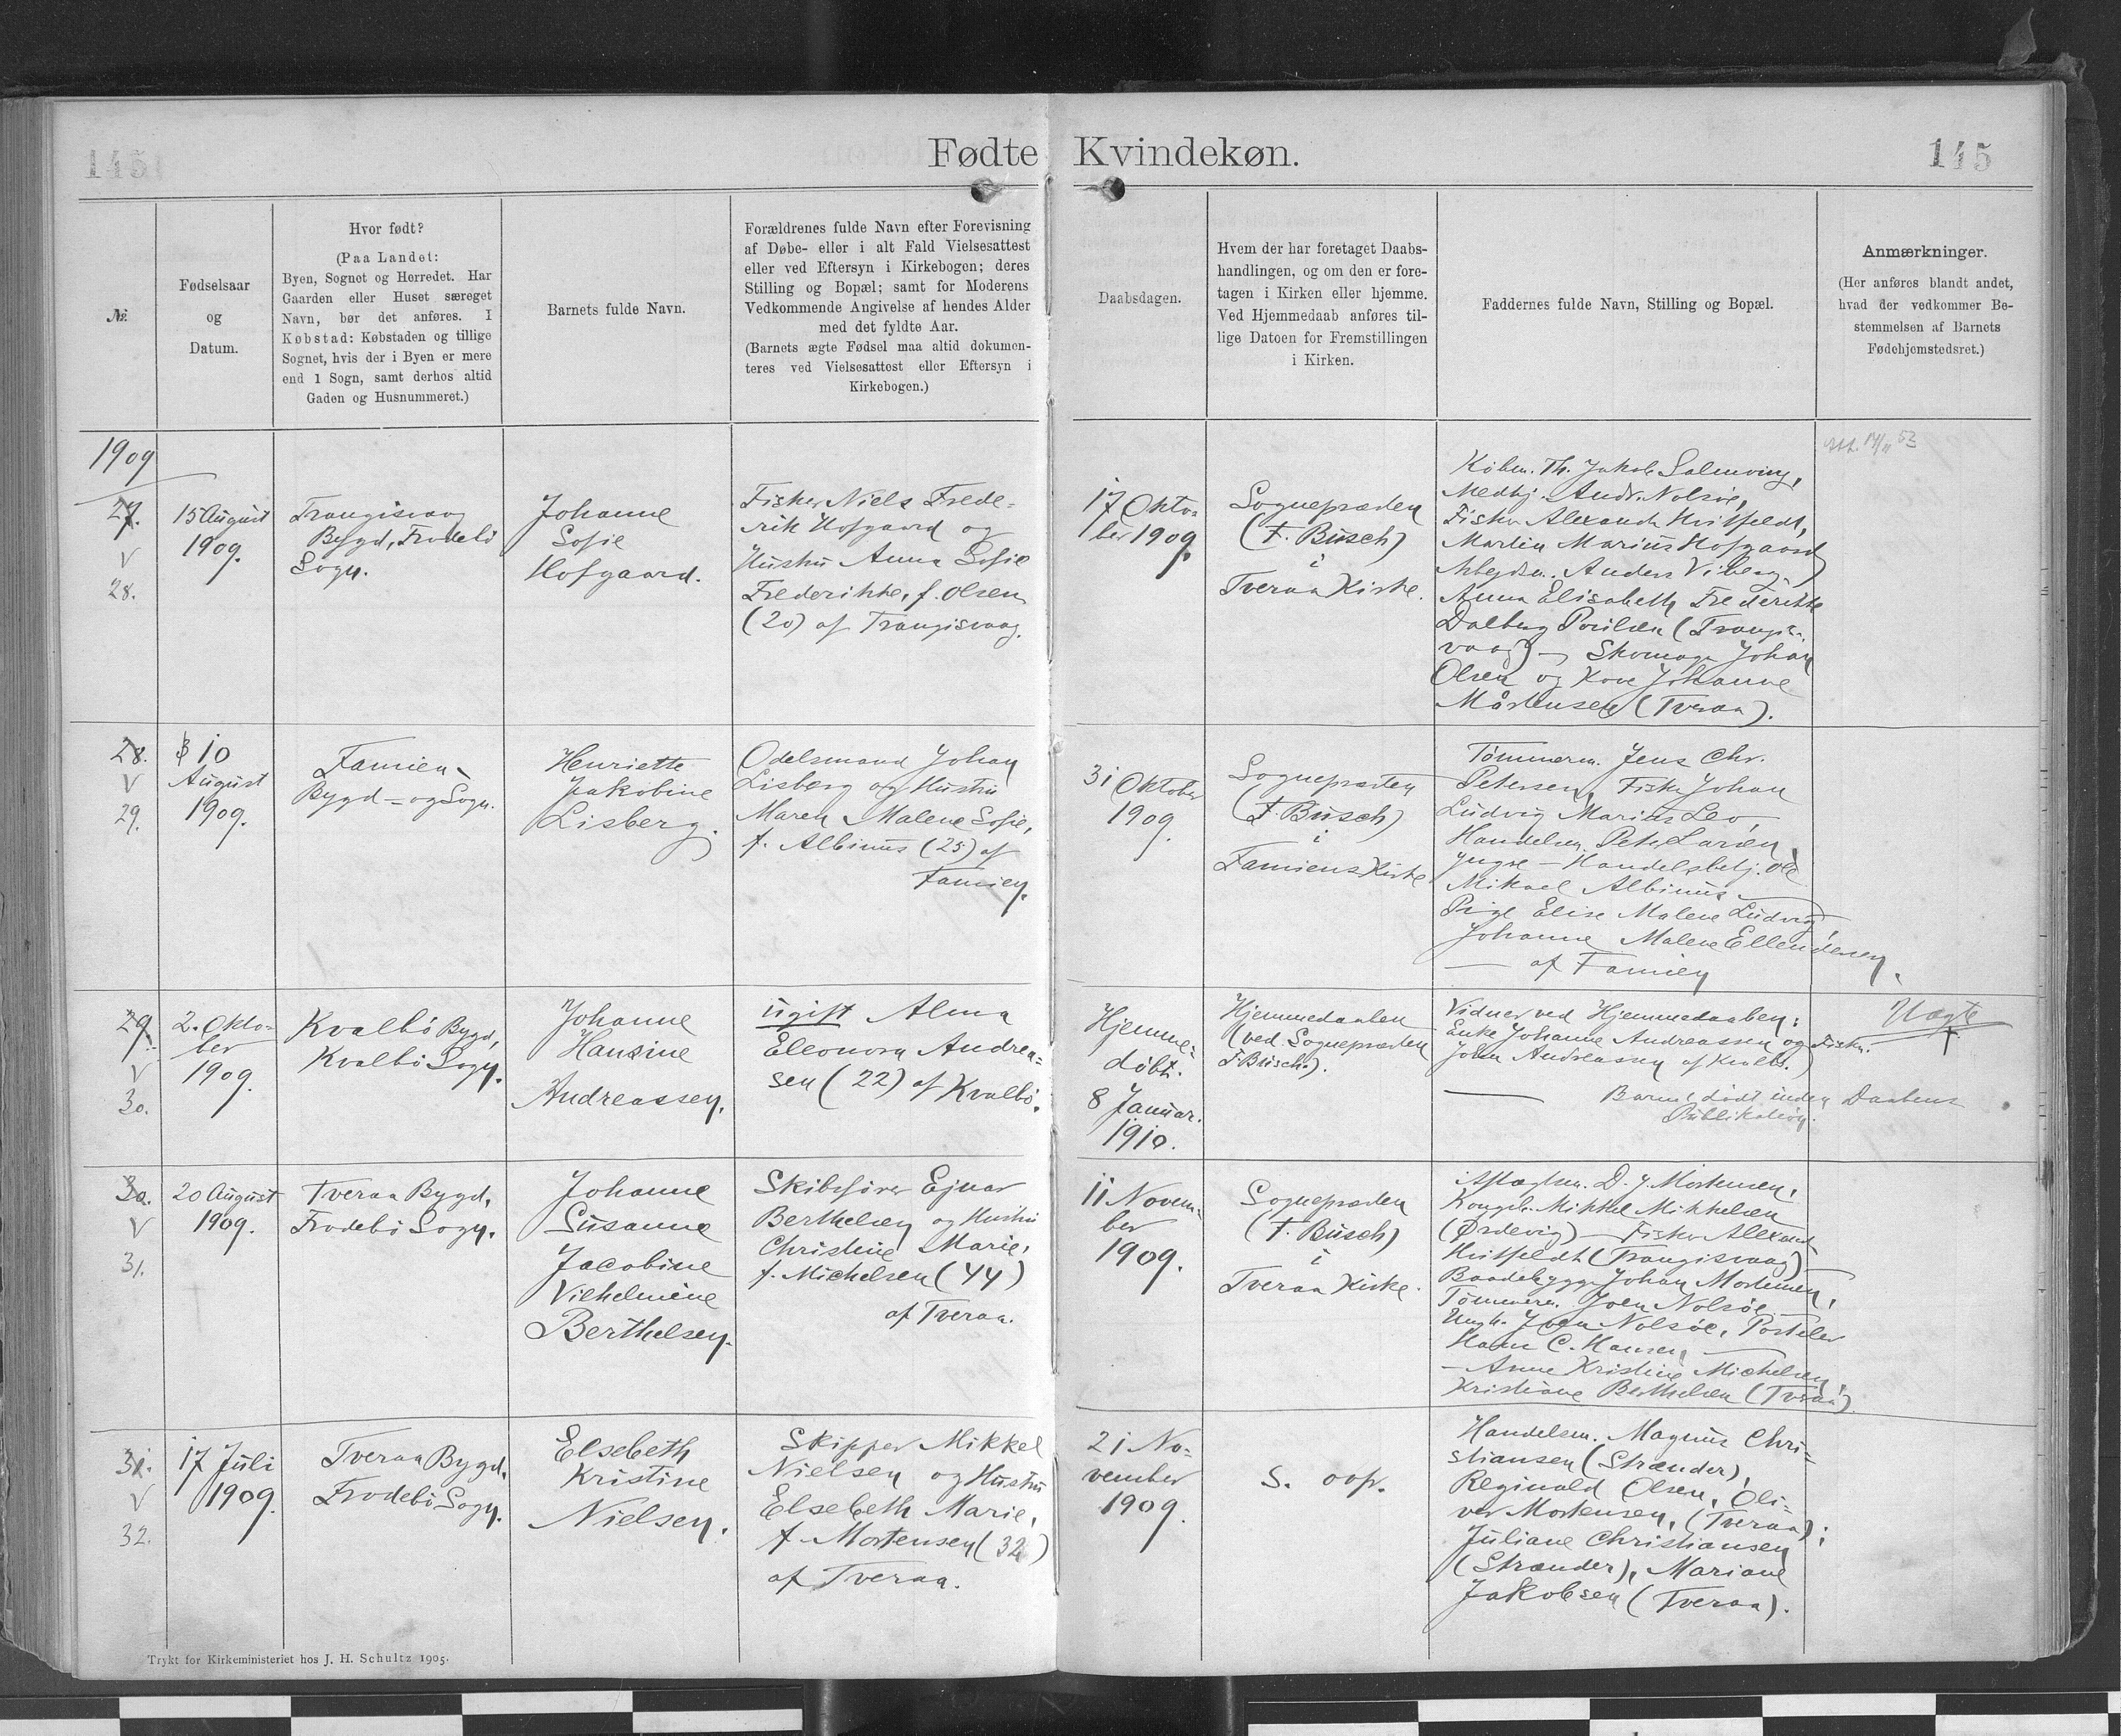 145
Fødte Kvindekøn.
145
№.
Fødselsaar
og
Datum.
Hvor født?
(Paa Landet:
Byen, Sognet og Herredet. Har
Gaarden eller Huset særeget
Navn, bør det anføres. I
Købstad: Købstaden og tillige
Sognet, hvis der i Byen er mere
end 1 Sogn, samt derhos altid
Gaden og Husnummeret.)
Barnets fulde Navn.
Forældrenes fulde Navn efter Forevisning
af Døbe- eller i alt Fald Vielsesattest
eller ved Eftersyn i Kirkebogen; deres
Stilling og Bopæl; samt for Moderens
Vedkommende Angivelse af hendes Alder
med det fyldte Aar.
(Barnets ægte Fødsel maa altid dokumen-
teres ved Vielsesattest eller Eftersyn i
Kirkebogen.)
Daabsdagen.
Hvem der har foretaget Daabs-
handlingen, og om den er fore-
tagen i Kirken eller hjemme.
Ved Hjemmedaab anføres til-
lige Datoen for Fremstillingen
i Kirken.
Faddernes fulde Navn, Stilling og Bopæl.
Anmærkninger.
(Her anføres blandt andet,
hvad der vedkommer Be-
stemmelsen af Barnets
Fødehjemstedsret.)
1909
27.
V
28.
15 August
1909.
Trangisvaag
Bygd, Frodebö
Sogn.
Johanne
Sofie
Hofgaard.
Fisker Niels Frede-
rik Hofgaard og
Hustru Anna Sofie
Frederikke, f. Olsen
(20) af Trangisvaag.
17 Okto-
ber 1909.
Sognepræsten
(F. Busch)
i
Tveraa Kirke.
Købm. Th. Jakob Salmving,
Medhj. Andr. Nolsöe,
Fisker Alexander Hvitfeldt,
Martin Marius Hofgaard
Arbejdsm. Anders Viberg,
Anna Elisabeth Frederikke
Dalberg Poulsen (Trangis-
vaag) – Skomager Johan
Olsen og Kone Johanne
Mårtensen (Tveraa).
28.
V
29.
10
August
1909.
Famien-
Bygd- og Sogn.
Henriette
Jakobine
Lisberg.
Odelsmand Johan
Lisberg og Hustru
Maren Malene Sofie,
f. Albinus (25) af
Famien.
31 Oktober
1909.
Sognepræsten
(F. Busch)
i
Famiens Kirke
Tømmerm. Jens Chr.
Petersen, Fisker Johan
Ludvig Marius Leo,
Handelsm. Peter Larsen,
yngre – Handelsbetj. Ole
Mikael Albinus –
Pige Elise Malene Ludvig,
Johanne Malene Ellendersen,
– af Famien
29.
V
30.
2. Okto-
ber
1909.
Kvalbö Bygd,
Kvalbö Sogn.
Johanne
Hansine
Andreassen.
ugift Alma
Eleonora Andrea-
sen (22) af Kvalbö.
Hjemme-
döbt.
8 Januar.
1910.
Hjemmedaaben
(ved Sognepræsten
F. Busch).
Vidner ved Hjemmedaaben:
Enke Johanne Andreassen og Fisker
John Andreassen af Kvalbö.
– Barnet dødt inden Daabens
Publikation.
Uægte
†
30.
V
31.
20 August
1909.
Tveraa Bygd,
Frodebö Sogn.
Johanne
Susanne
Jacobine
Vilhelmine
Berthelsen.
Skibsfører Ejnar
Berthelsen og Hustru
Christine Marie,
f. Michelsen (44)
af Tveraa.
11 Novem-
ber
1909.
Sognepræsten
(F. Busch)
i
Tveraa Kirke.
D. J. Mortensen,
Kongsb. Mikkel Mikkelsen
(Ørdevig) – Fisker Alexander
Hvitfeldt (Trangisvaag)
Baadebygger Johan Mortensen,
Tömmerm. Joen Nolsöe –
Ungk. Joen Nolsöe, Postelev
Hans C. Hansen,
– Anne Kristine Michelsen,
Kristiane Berthelsen (Tveraa).
31.
V
32.
17 Juli
1909.
Tveraa Bygd,
Frodebö Sogn.
Elsebeth
Kristine
Nielsen.
Skipper Mikkel
Nielsen og Hustru
Elsebeth Marie,
f. Mortensen (32)
af Tveraa.
21 No-
vember
1909.
S. oop.
Handelsm. Magnus Chri-
stiansen (Strænder),
Reginald Olsen, Oli-
ver Mortensen, (Tveraa);
Juliane Christiansen
(Strænder), Mariane
Jakobsen (Tveraa).
Trykt for Kirkeministeriet hos J. H. Schultz 1905.